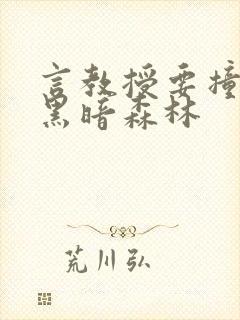 言教授要撞
黑暗森林
荒川弘